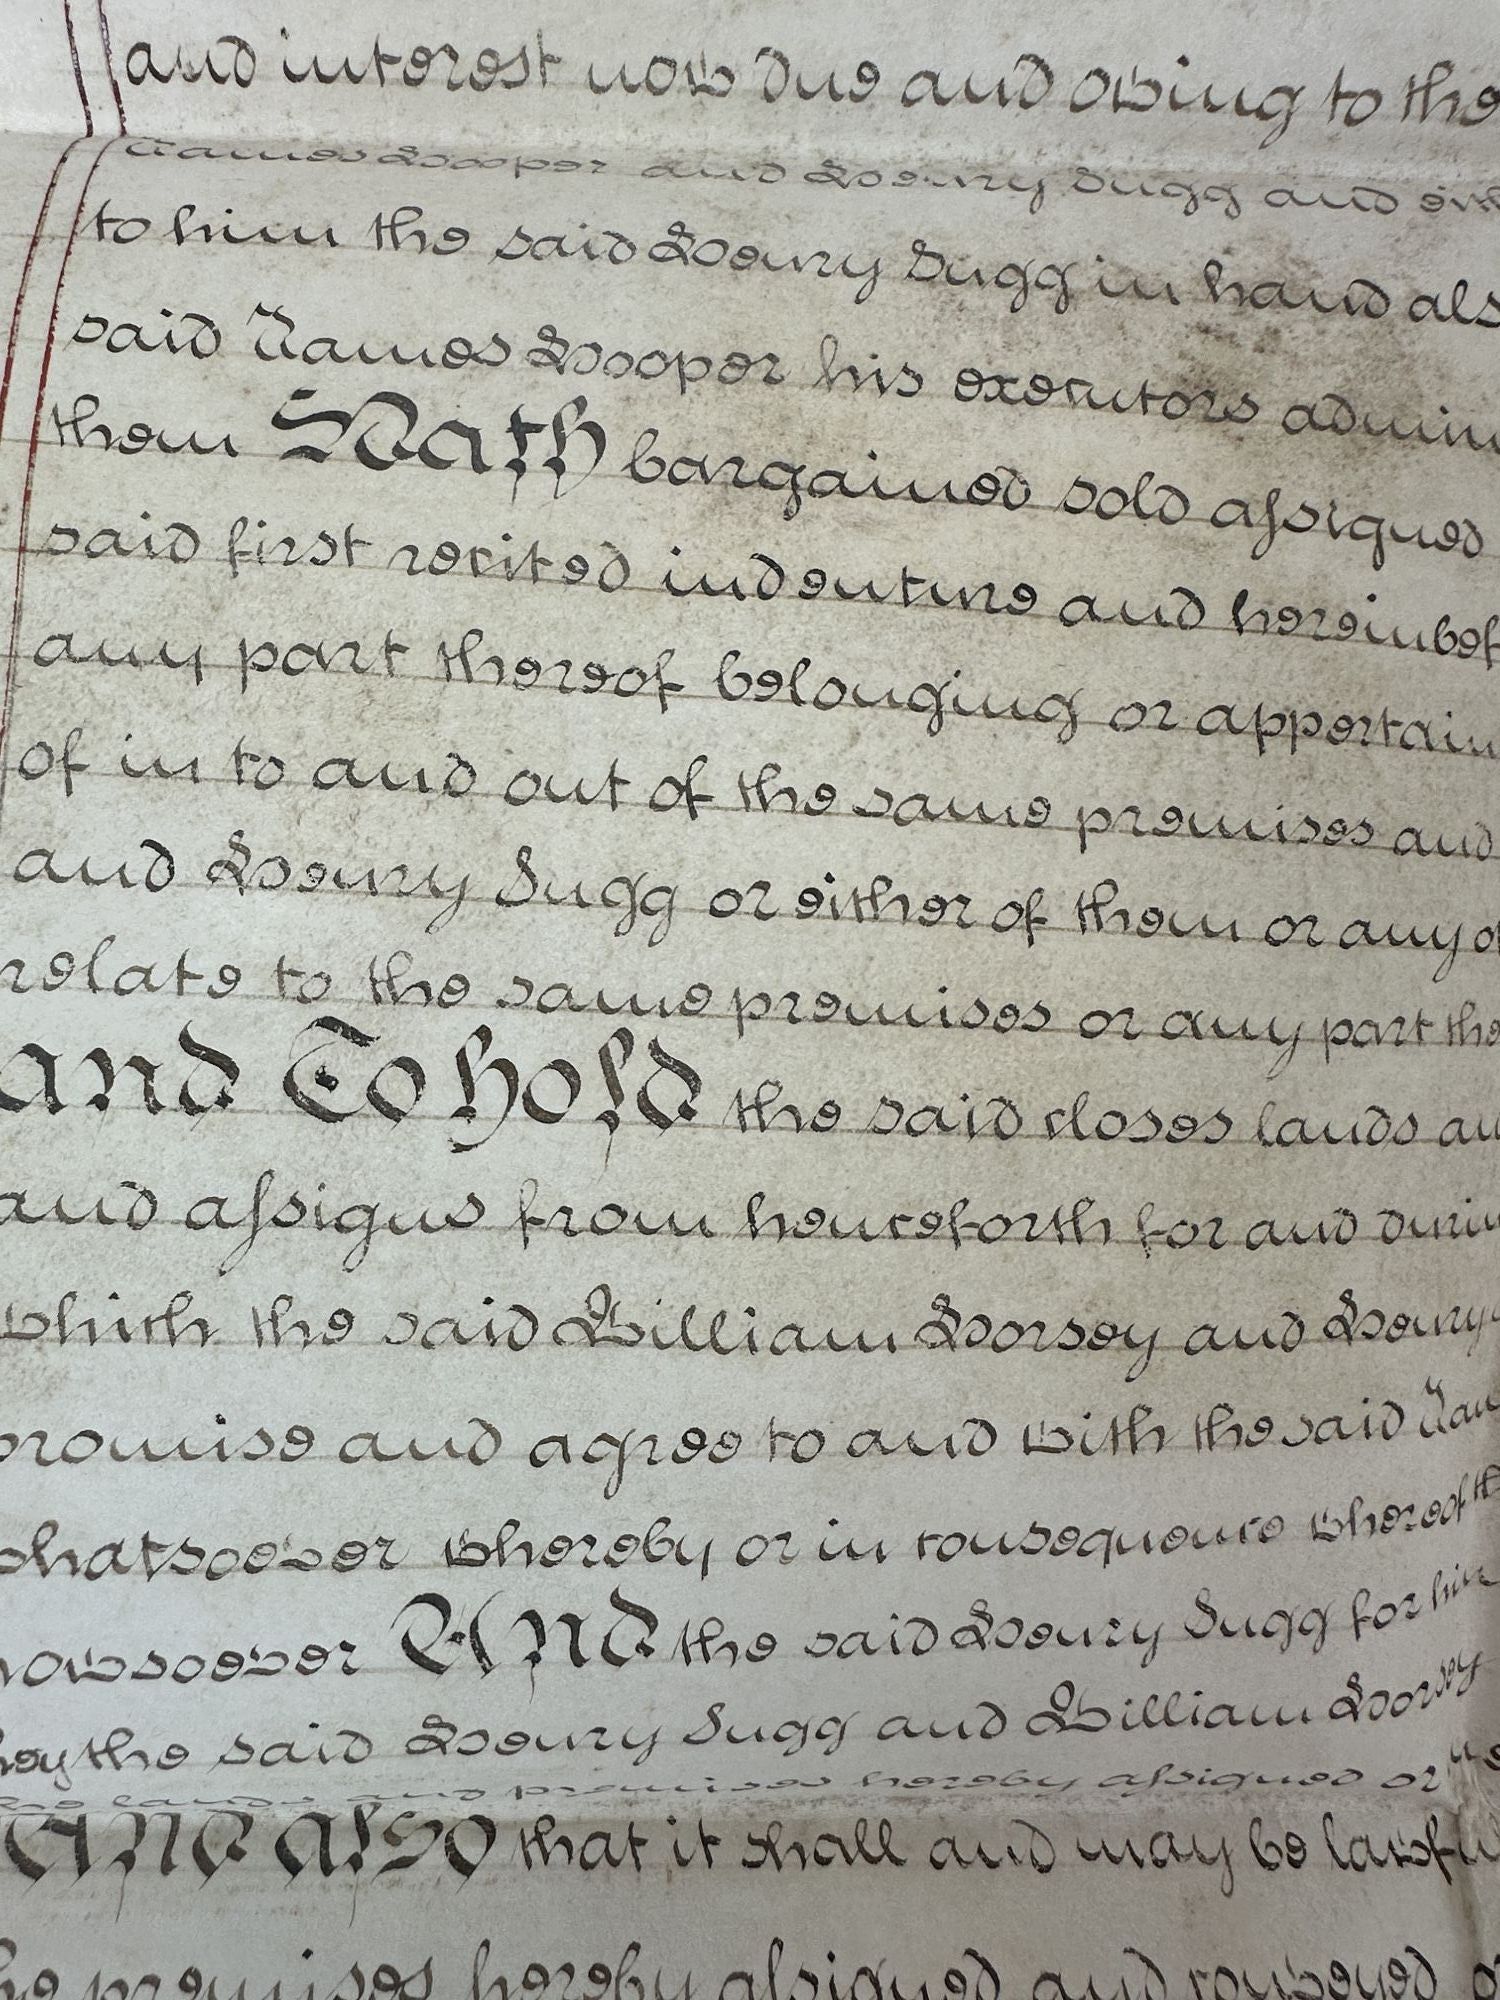 and interest now due and owing to the
James Hooper and Henry Sugg and
to him the said Henry Sugg in hand als
said James Hooper his executors admin
them Hath bargained sold assigned
said first recited indenture and hereinbef
any part thereof belonging or appertain
of in to and out of the same premises and
and Henry Sugg or either of them or any
relate to the same premises or any part the
and To hold the said closes lands an
and assigns from henceforth for and durin
which the said William Horsey and Henry
promise and agree to and with the said Jam
whatsoever whereby or in consequence whereof th
howsoever And the said Henry Sugg for him
hey the said Henry Sugg and William Horsey
lands and premises hereby assigned or
And also that it shall and may be lawful
he premises hereby assigned and conveyed